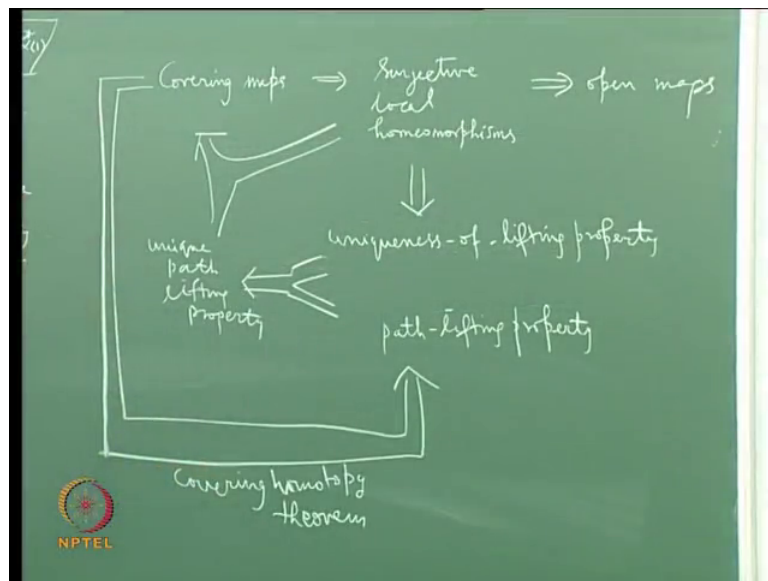 Covering maps ⇒ Surjective ⇒ open maps
local
homeomorphisms
uniqueness-of-lifting property
unique
path
lifting
property
path-lifting property
Covering homotopy
theorem
NPTEL